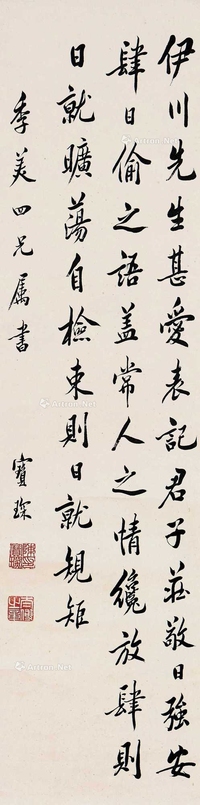 伊川先生甚愛表記君子莊敬日強安
肆日偷之語蓋常人之情纔放肆則
日就曠蕩自檢束則日就規矩
季美四兄屬書
寶琛